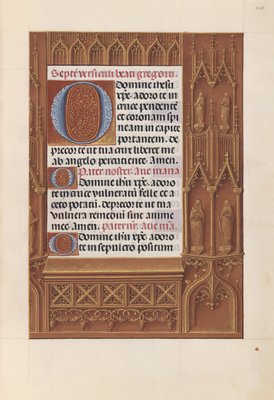 Septē versiculi beati gregorii.
Domine ihesu
xp̄e adoro te in
cruce pendentē
et coronam spi
neam in capite
portantem. de
precor te ut tua crux liberet me
ab angelo percutiente Amen.
Pater noster. aue maria
Domine ihū xp̄e. adoro
te in cruce vulneratū felle et a
ceto potatū. deprecor te ut tua
vulnera remediū sint anime
mee. Amen. Pater nr̄. Aue ma.
Domine ihū xp̄e. adoro
te in sepulcro positum